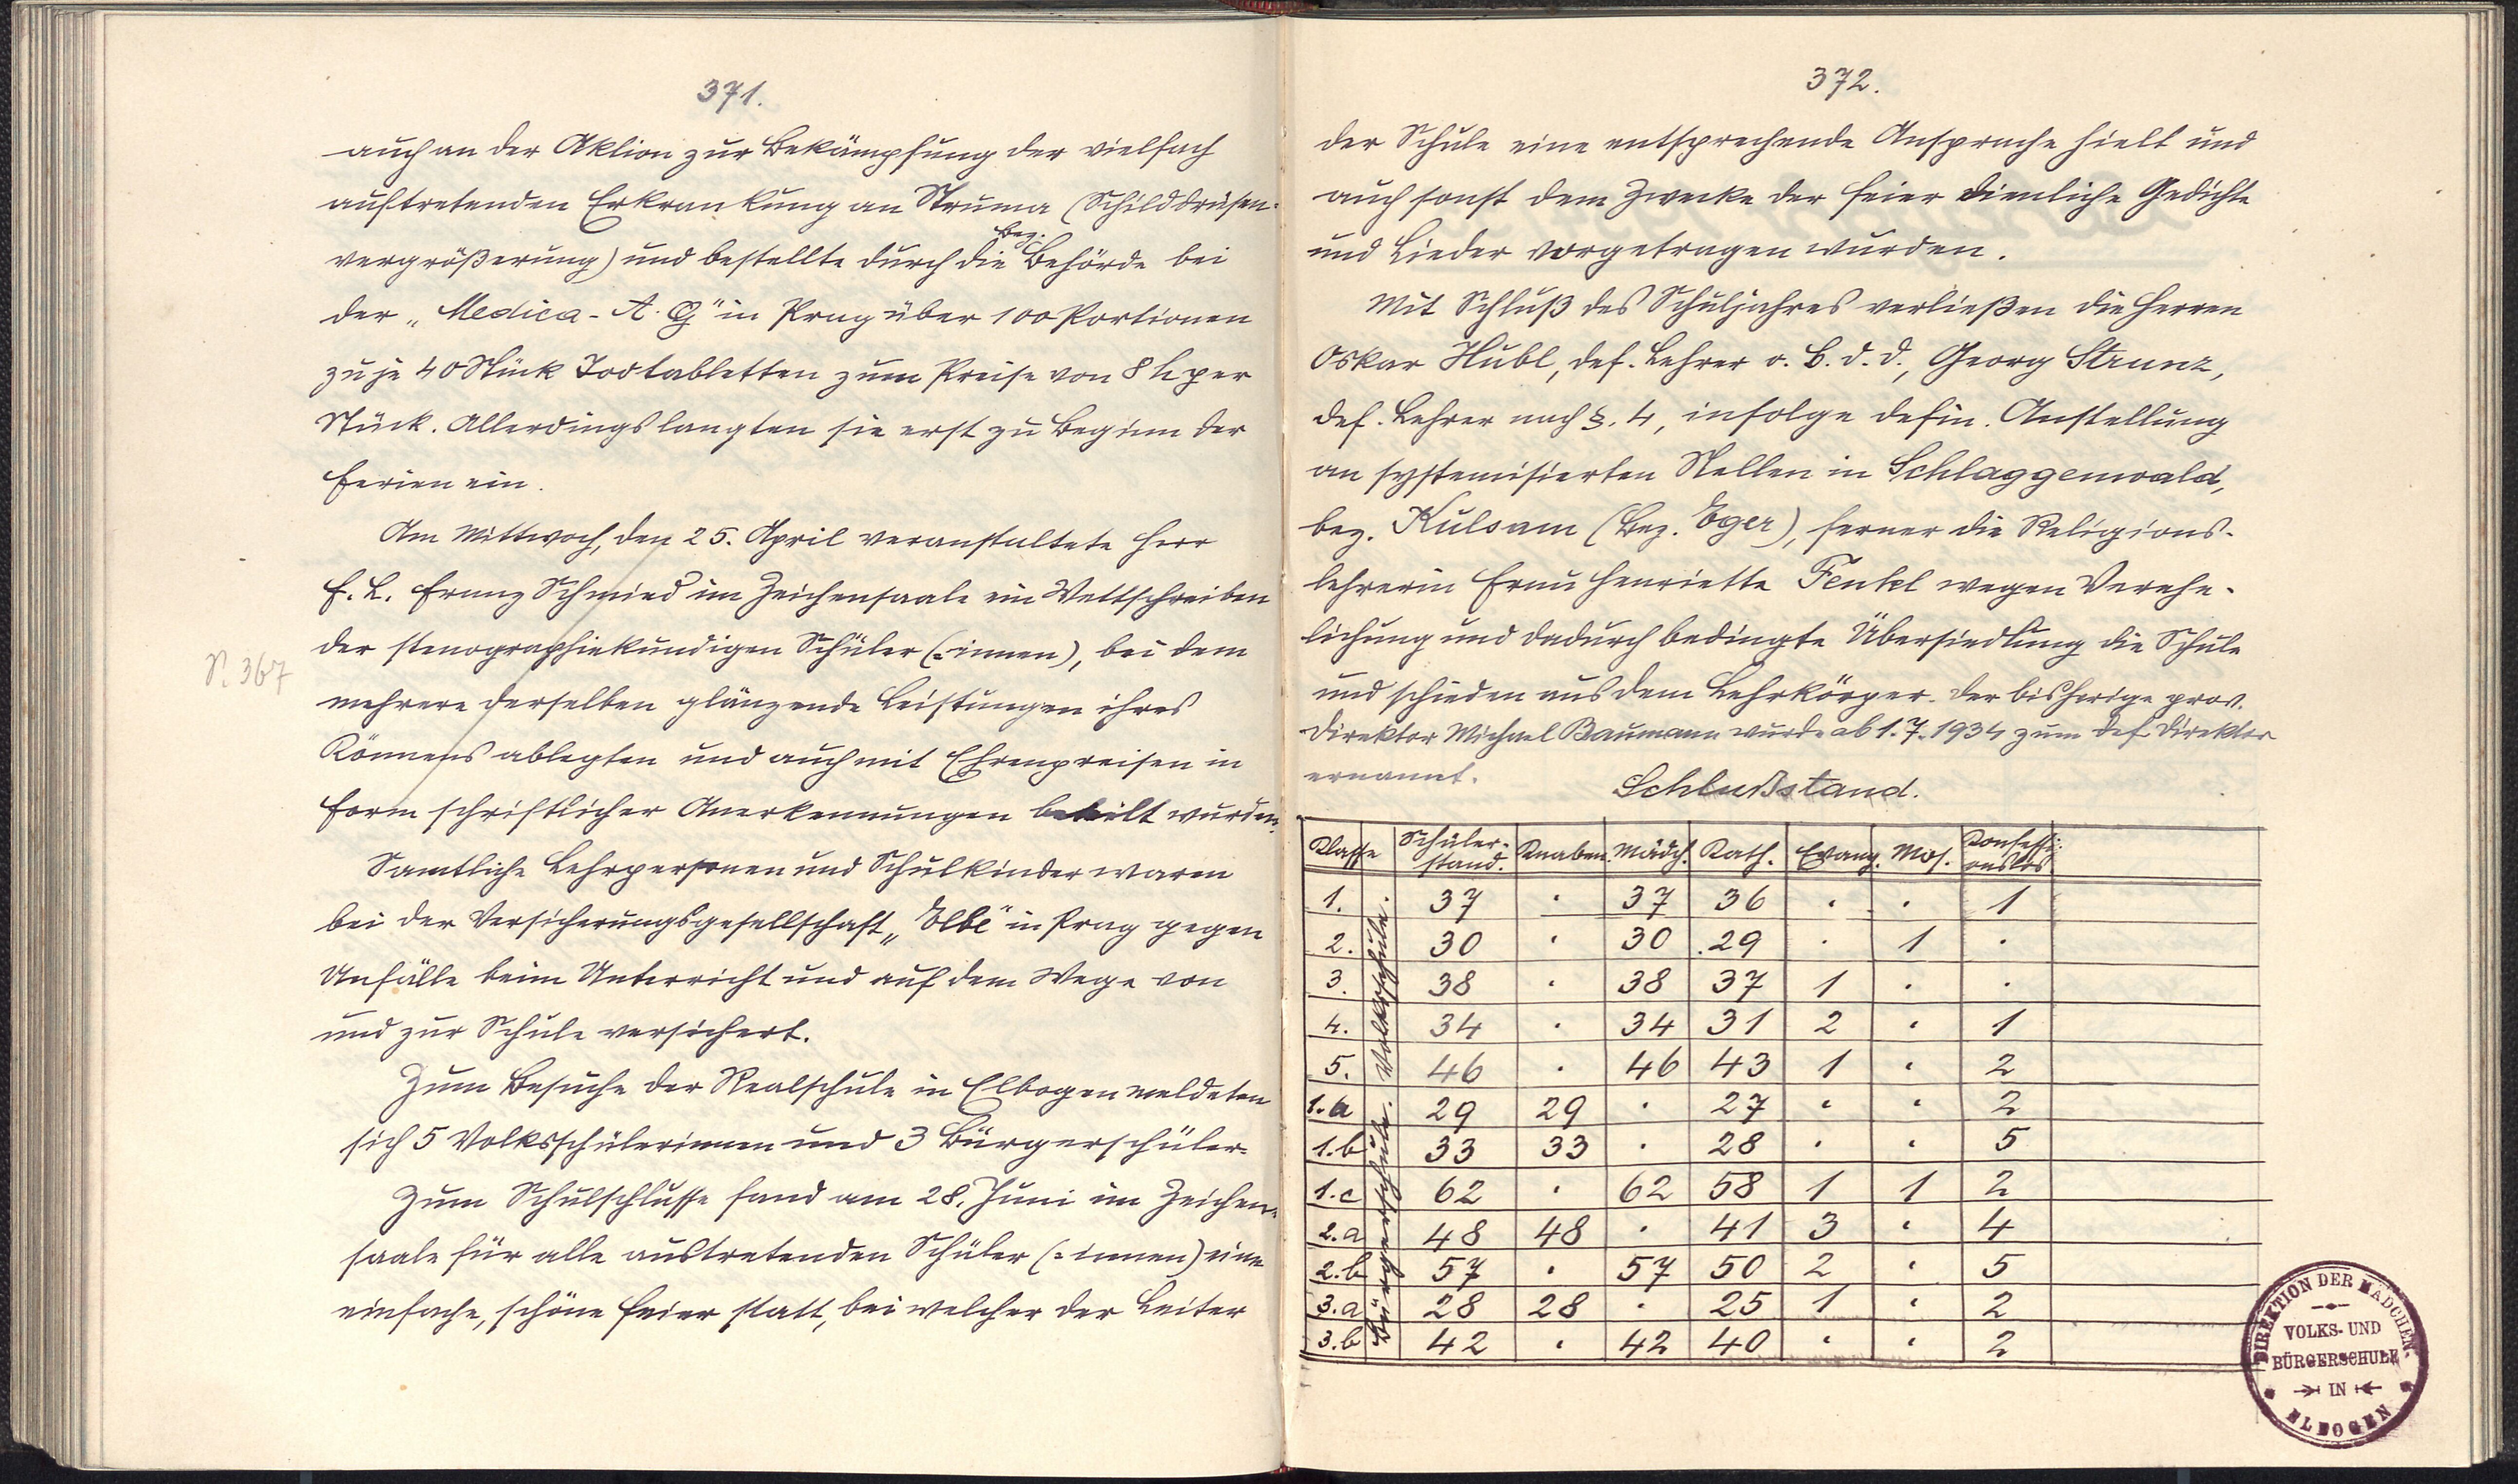 371.
auch an der Aktion zur Bekämpfung der vielfach
auftretenden Erkrankung an Struma (Schilddrüsen-
bez.
vergrößerung) und bestellte durch die Behörde bei
der „Medica-A.G" in Prag über 100 Portionen
zu je 40 Stück Jodtabletten zum Preise von 8 h per
Stück. Allerdings langten sie erst zu Beginn der
Ferien ein.
Am Mittwoch, den 25. April veranstaltete Herr
F. L. Franz Schmied im Zeichensaale ein Wettschreiben
der stenographiekundigen Schüler (-innen), bei dem
S. 367
mehrere derselben glänzende Leistungen ihres
Könnens ablegten und auch mit Ehrenpreisen in
Form schriftlicher Anerkennungen beteilt wurden.
Samtliche Lehrpersonen und Schulkinder waren
bei der Versicherungsgesellschaft „Elbe" in Prag gegen
Unfälle beim Unterricht und auf dem Wege von
und zur Schule versichert.
Zum Besuche der Realschule in Elbogen meldeten
sich 5 Volksschülerinnen und 3 Bürgerschüler.
Zum Schulschlusse fand am 28. Juni im Zeichen-
saale für alle austretenden Schüler (-innen) eine
einfache, schöne Feier statt, bei welcher der Leiter
372.
der Schule eine entsprechende Ansprache hielt und
auch sonst dem Zwecke der Feier dienliche Gedichte
und Lieder vorgetragen wurden.
Mit Schluß des Schuljahres verließen die Herren
Oskar Hubl, def. Lehrer o. B. d. D., Georg Strunz,
def. Lehrer nach §. 4, infolge defin. Anstellung
an systemisierten Stellen in Schlaggenwald,
bez. Kulsam (Bez. Eger), ferner die Religions-
lehrerin Frau Henriette Fenkl wegen Verehe-
lichung und dadurch bedingte Übersiedlung die Schule
und schieden aus dem Lehrkörper. Der bisherige prov.
Direktor Michael Baumann wurde ab 1.7.1934 zum def. Direktor
ernannt.
Schlußstand.
Klasse Schüler-stand. Knaben. Mädch. Kath. Evang. Mos. Konfessi-onslos
Volksschule.
1. 37 . 37 36 . . 1
2. 30 . 30 29 . 1 .
3. 38 . 38 37 1 . .
4. 34 . 34 31 2 . 1
5. 46 . 46 43 1 . 2
Bürgerschule.
1.a 29 29 . 27 . . 2
1.b 33 33 . 28 . . 5
1.c 62 . 62 58 1 1 2
2.a 48 48 . 41 3 . 4
2.b 57 . 57 50 2 . 5
3.a 28 28 . 25 1 . 2
3.b 42 . 42 40 . . 2
DIREKTION DER MÄDCHEN-
VOLKS- UND
BÜRGERSCHULE
IN
ELBOGEN